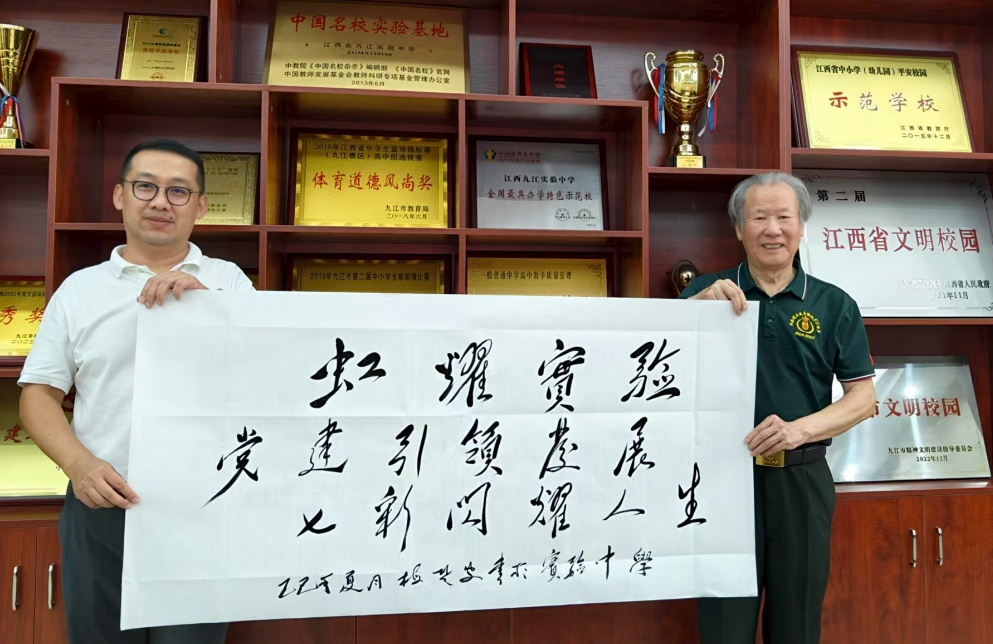 中国名校实验基地
江西省九江实验中学
ZGMX118106
中教院《中国名校杂志》编辑部 《中国名校》官网
中国教师发展基金会教师科研专项基金管理办公室
2013年6月
江西省中小学(幼儿园)平安校园
示范学校
江西省教育厅
二〇一五年十二月
2018年江西省中学生篮球锦标赛
(九江赛区)高中组选拔赛
体育道德风尚奖
九江市教育局
二〇一八年六月
江西九江实验中学
全国最具办学特色示范校
第二届
江西省文明校园
江西省人民政府
2021年11月
2019年九江市第二届中小学生
般普通中学高中教学质量管理
秀奖
市文明校园
九江市精神文明建设指导委员会
2022年11月
虹耀實验
党建引領發展
七新閃耀人生
乙巳年夏月
书于實驗中學